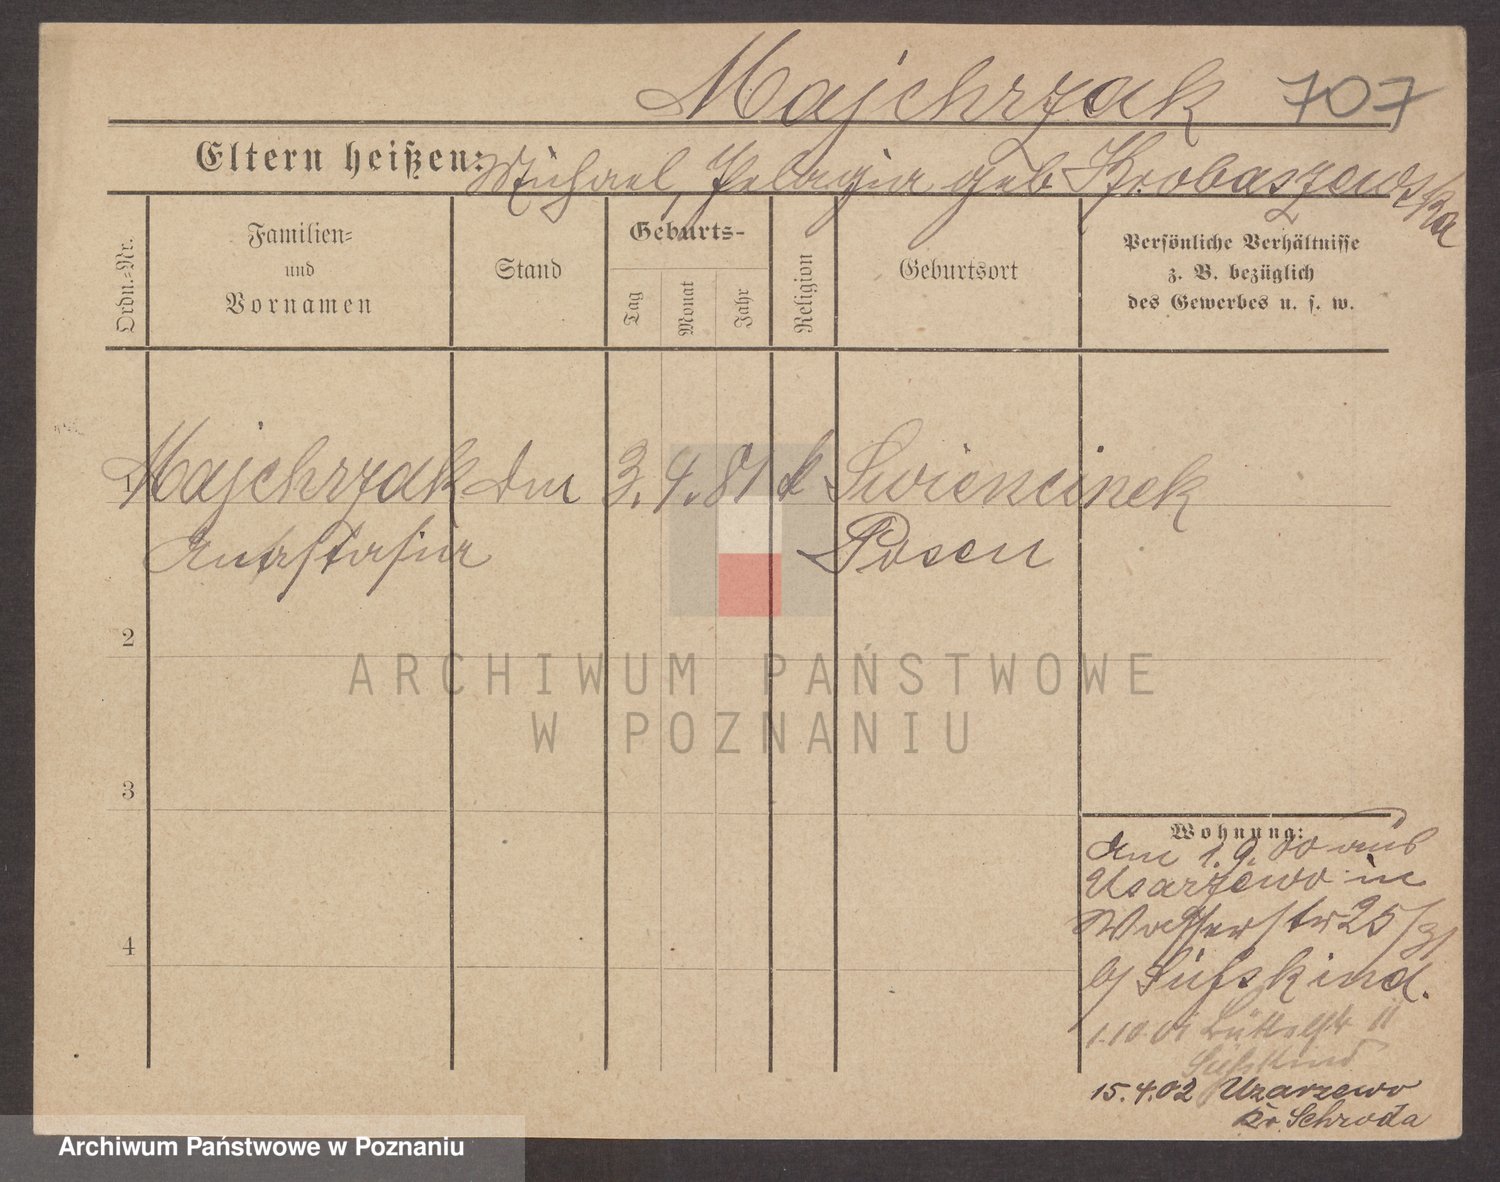 Majchrzak 707
Eltern heißen: Michael, Pelagia geb Krobaszewska
Ordn.=Nr.
Familien=
und
Vornamen
Stand
Geburts-
Tag
Monat
Jahr
Religion
Geburtsort
Persönliche Verhältnisse
z. B. bezüglich
des Gewerbes u. s. w.
1 Majchrzak 3. 4. 81 k Swiencinek
Anastasia Posen
2
3
4
Wohnung:
Am 1. 9. 00 aus
Usarzewo in
Wasserstr 25
b/ Süßkind.
1.10.01 11
Süßkind
15.4.02 Uzarzewo
Kr. Schroda
ARCHIWUM PAŃSTWOWE
W POZNANIU
Archiwum Państwowe w Poznaniu